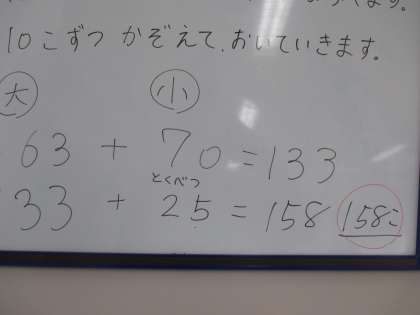 ます。
10こずつ かぞえて、おいていきます。
大 小
63 + 70 = 133
とくべつ
33 + 25 = 158 158こ